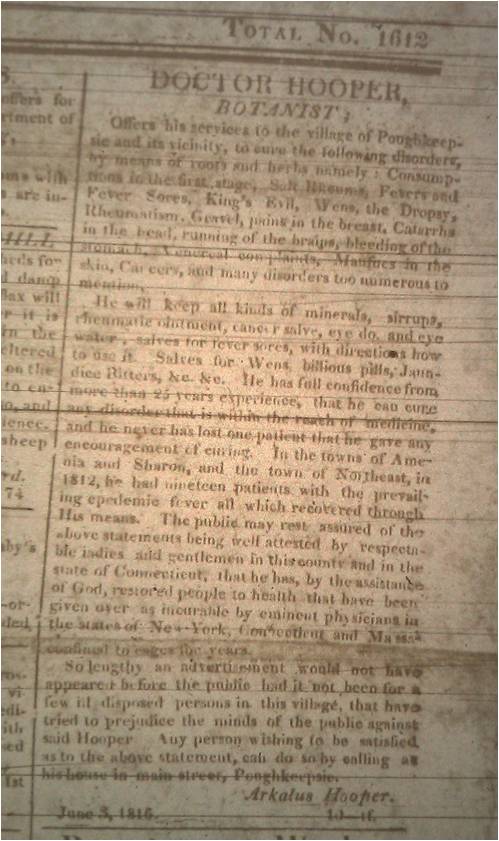 TOTAL No. 1612
DOCTOR HOOPER,
BOTANIST;
Offers his services to the village of Poughkeep-
sie and its vicinity, to cure the following disorders,
by means of roots and herbs namely: Consump-
tions in the first stage, Salt Rheums, Fevers and
Fever Sores, King's Evil, Wens, the Dropsy,
Rheumatism, Gravel, pains in the breast, Catarrhs
in the head, running of the brains, bleeding of the
stomach, Venereal complaints, in the
skin, Cancers, and many disorders too numerous to
mention.
He will keep all kinds of minerals, sirrups,
rheumatic ointment, cancer salve, eye do. and eye
water, salves for fever sores, with directions how
to use it. Salves for Wens, billious pills, Jaun-
dice Bitters, &c. &c. He has full confidence from
more than 25 years experience, that he can cure
any disorder that is within the reach of medicine,
and he never has lost one patient that he gave any
encouragement of curing. In the towns of Ame-
nia and Sharon, and the town of Northeast, in
1812, he had nineteen patients with the prevail-
ing epedemic fever all which recovered through
His means. The public may rest assured of the
above statements being well attested by respecta-
ble ladies and gentlemen in this county and in the
state of Connecticut, that he has, by the assistance
of God, restored people to health that have been
given over as incurable by eminent physicians in
the states of New-York, Connecticut and Massa-
confined to for years.
So lengthy an advertisement would not have
appeared before the public had it not been for a
few ill disposed persons in this village, that have
tried to prejudice the minds of the public against
said Hooper Any person wishing to be satisfied
as to the above statement, can do so by calling at
his house in main street, Poughkeepsie.
Arkalus Hooper.
June 3, 1816. 10-tf.
offers for
HILL
flax will
or it is
on the
sheep
74